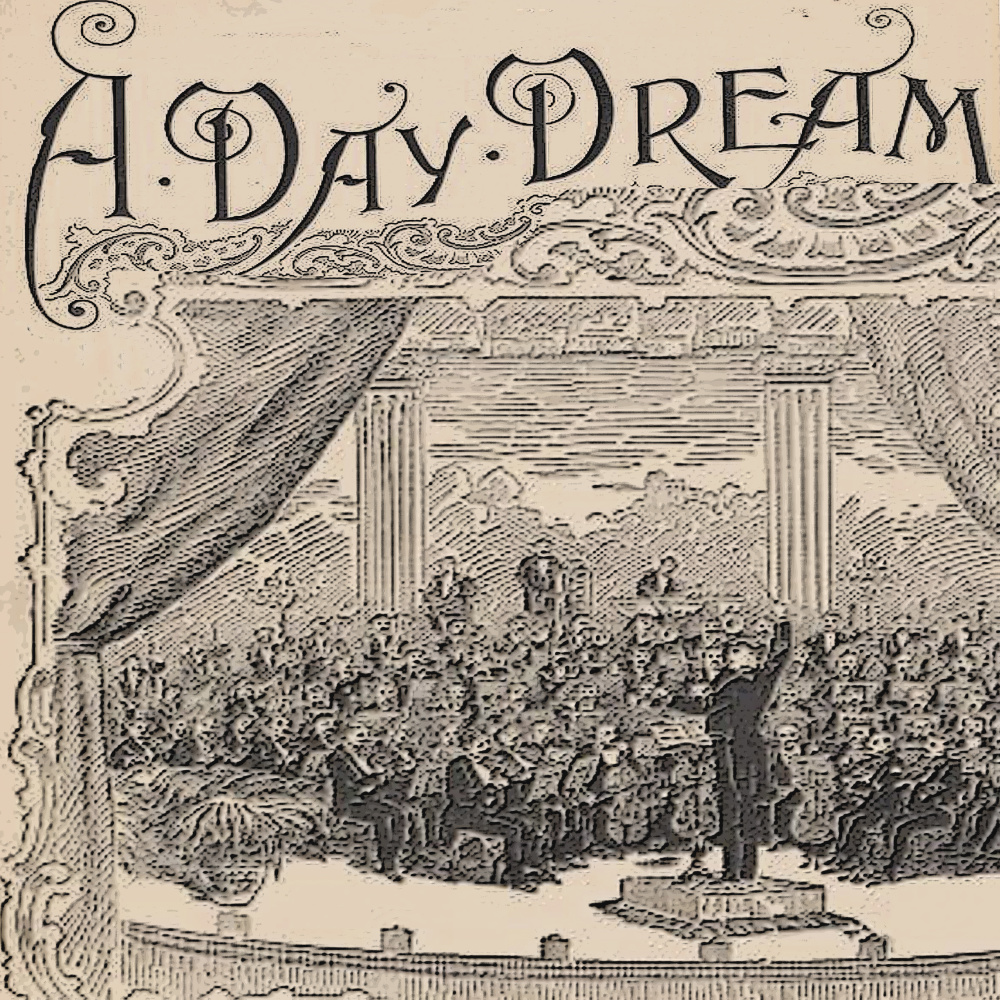 A·DAY·DREAM